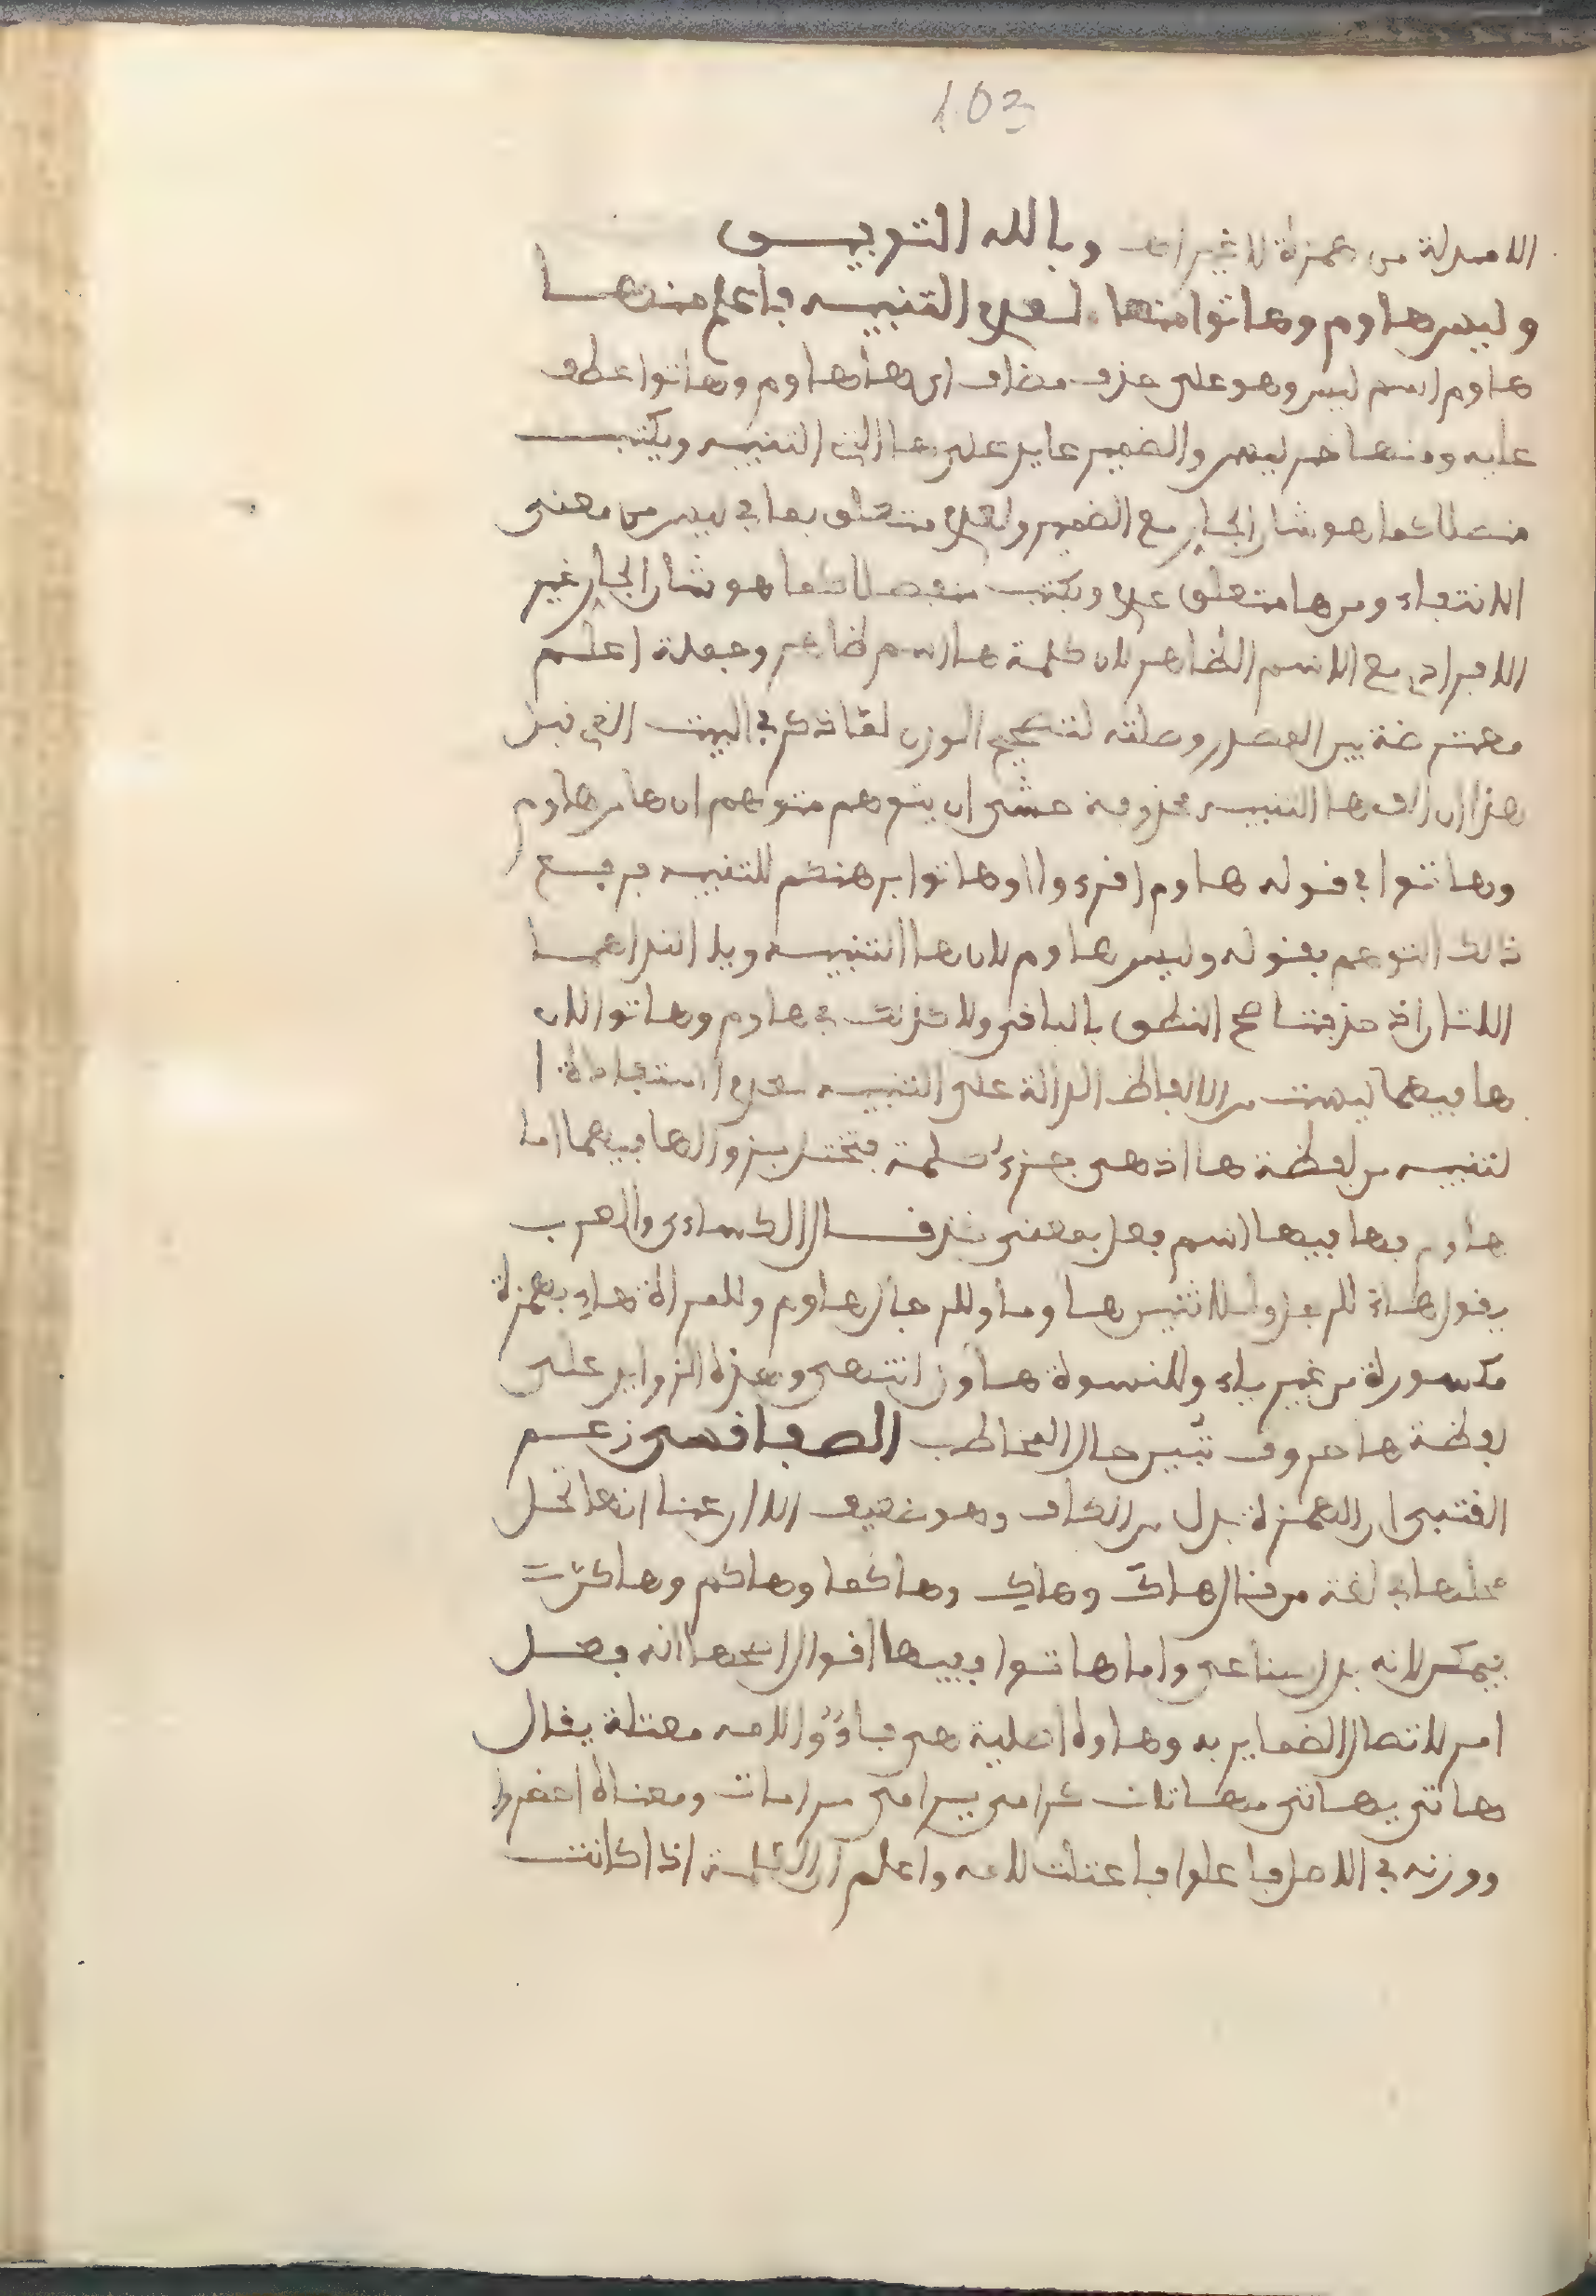 103
الا مبدلة من همزة لا غير وبالله التوفيق
وليس هاوم وهاتوا منها لعدم التنبيه فاعلمنها
هاوم اسم ليس وهو على حذف مضاف اى هاهاوم وهاتوا عطف
عليه ومنها خبر ليس والضمير عايد على ها التى التنبيه ويكتب
متصلا كما هو شان الجار مع الضمير ولعدم متعلق بما في ليس من معنى
الانتفاء ومن ها متعلق علم ويكتب منفصلا كما هو شان الجار غير
الافرادي مع الاسم الظاهر لان كلمة ها اسم ظاهر وجملة اعلم
معترضة بين المصدر وصلته لتصحيح الوزن لما ذكر في البيت الذي قبل
هذا ان الف ها التنبيه محذوفة خشى ان يتوهم متوهم ان ها من هاوم
وهاتوا في قوله هاوم اقرءوا وهاتوا برهنكم للتنبيه فرفع
ذالك التوهم بقوله وليس هاوم لان ها التنبيه ويا الندا هما
اللتان اذا حذفتا صح النطق بالباقي ولا كذلك في هاوم وهاتوا لان
ها فيهما ليست من الالفاظ الدالة على التنبيه لعدم استفادة ا
لتنبيه من لفظة ها اذ هى جزء كلمة فتختل بزوالها فيهما اما
هاوم فها فيها اسم فعل بمعنى خذ قال الكساءى والعرب
يقول هاء للرجل وللاثنين هاوما وللرجال هاوم وللمراة هاء بهمزة
مكسورة من غير ياء وللنسوة هاون انتهى وهذه الزوايد على
لفظة ها حروف تبين حال المخاطب الصفاقسي زعم
القتبى ان الهمزة بدل من الكاف وهو ضعيف الا ان عنا انها تحل
محلها في لغة من قال هاكَ وهاكِ وهاكما وهاكم وهاكنّ =
فيمكن لانه بدل صناعى واما هاتوا ففيها اقوال اصحها انه فعل
امر لاتصال الضماير به وهاوه اصلية هى فاؤه ولامه معتلة يقال
هاتى يهاتى مهاتات كرامى يرامى مرامات ومعناه احضروا
ووزنه في الاصل فاعلوا فاعتلت لامه واعلم ان الكلمة اذا كانت